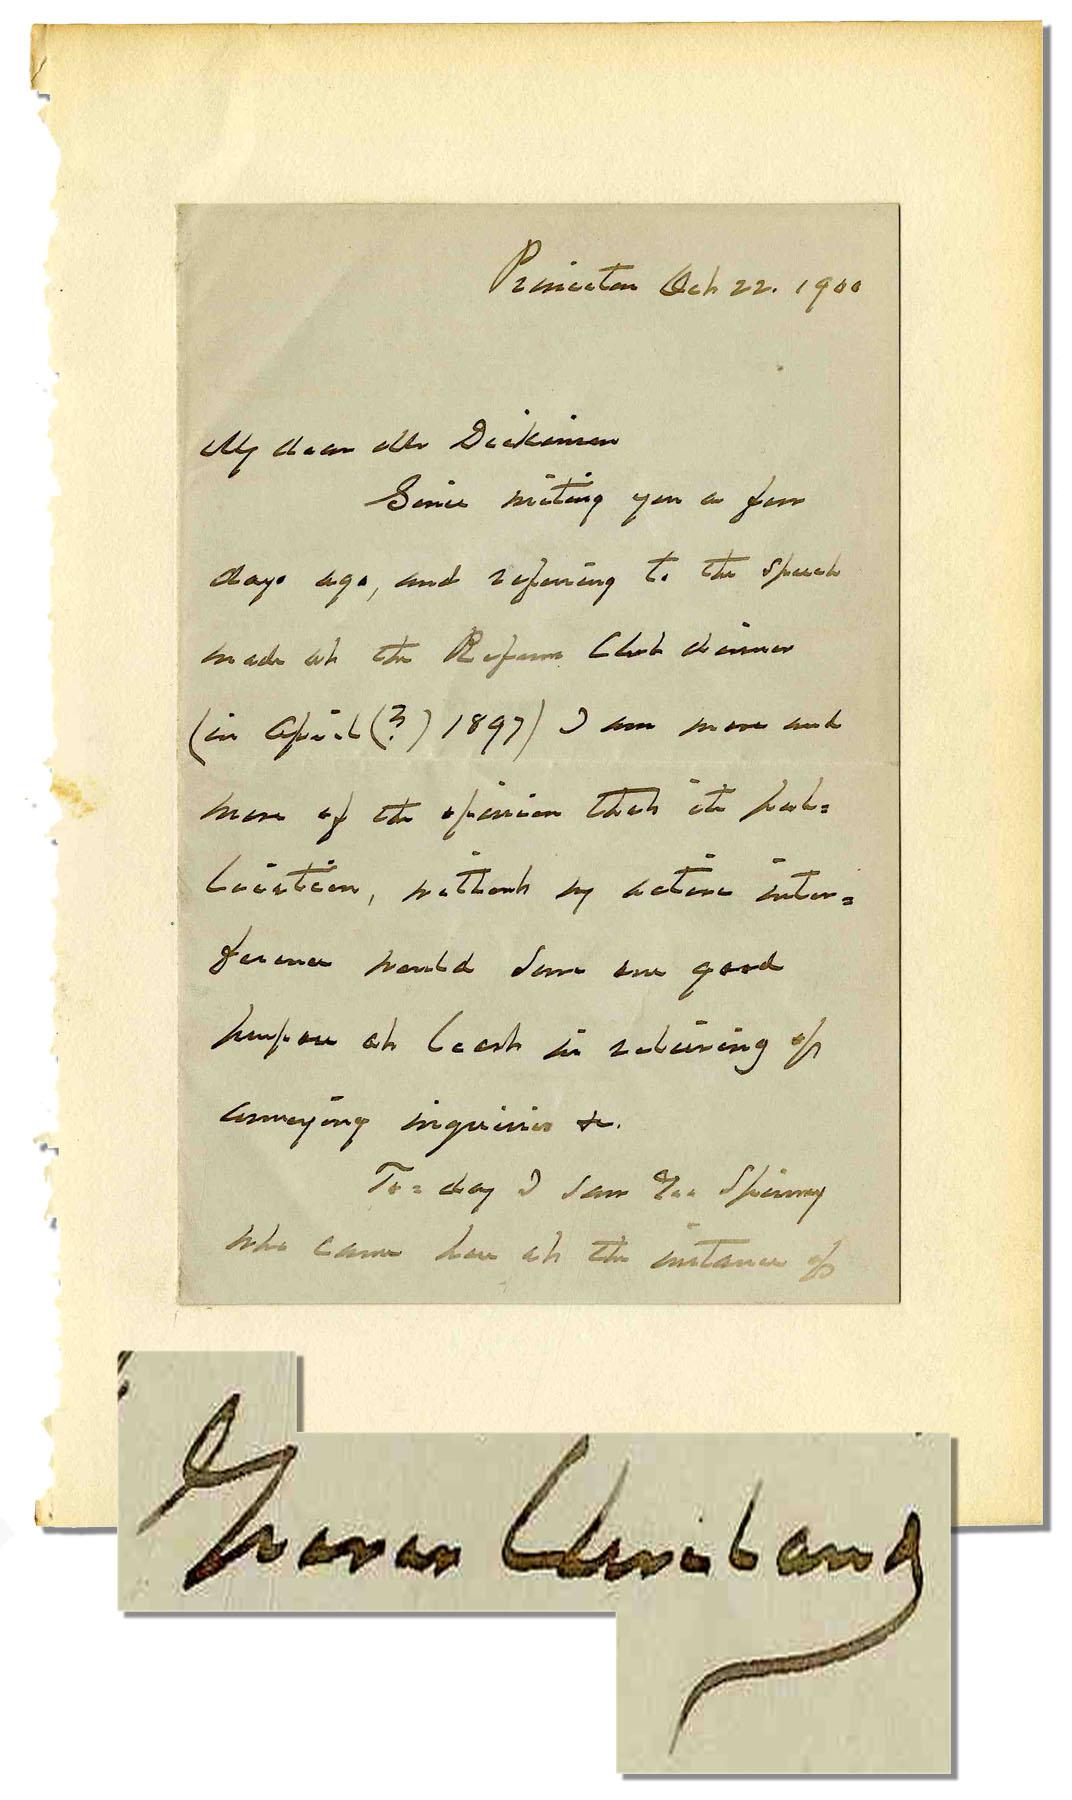 Princeton Oct 22. 1900
My dear Mr Dickinson
Since writing you a few
days ago, and referring to the speech
made at the Reform Club dinner
(in April (?) 1897) I am more and
more of the opinion that its pub=
lication, without my active inter=
ference would serve one good
purpose at least in relieving of
annoying inquiries &c.
To=day I saw Geo Spinney
who came here at the instance of
Grover Cleveland